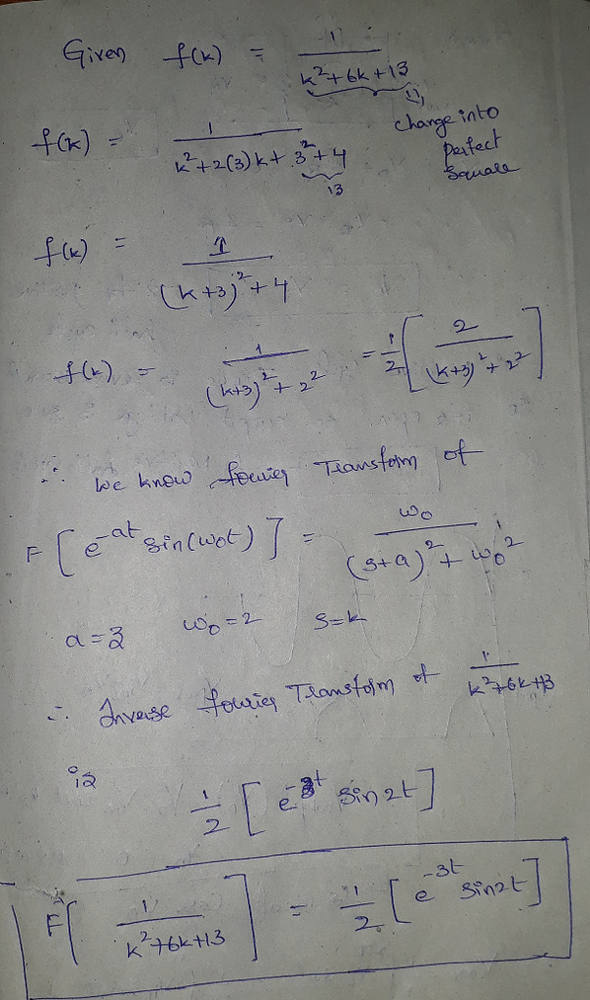 Given f(k) = 1 / (k²+6k+13)
change into
perfect
square
f(k) = 1 / (k²+2(3)k+3²+4)
13
f(k) = 1 / ((k+3)²+4)
f(k) = 1 / ((k+3)²+2²) = 1/2 [ 2 / ((k+3)²+2²) ]
∴ We know fourier Transform of
F[e^-at sin(ω₀t)] = ω₀ / ((s+a)²+ω₀²)
a=3 ω₀=2 s=k
∴ Inverse fourier Transform of 1 / (k²+6k+13)
is
1/2 [e^-3t sin2t]
F[1 / (k²+6k+13)] = 1/2 [e^-3t sin2t]